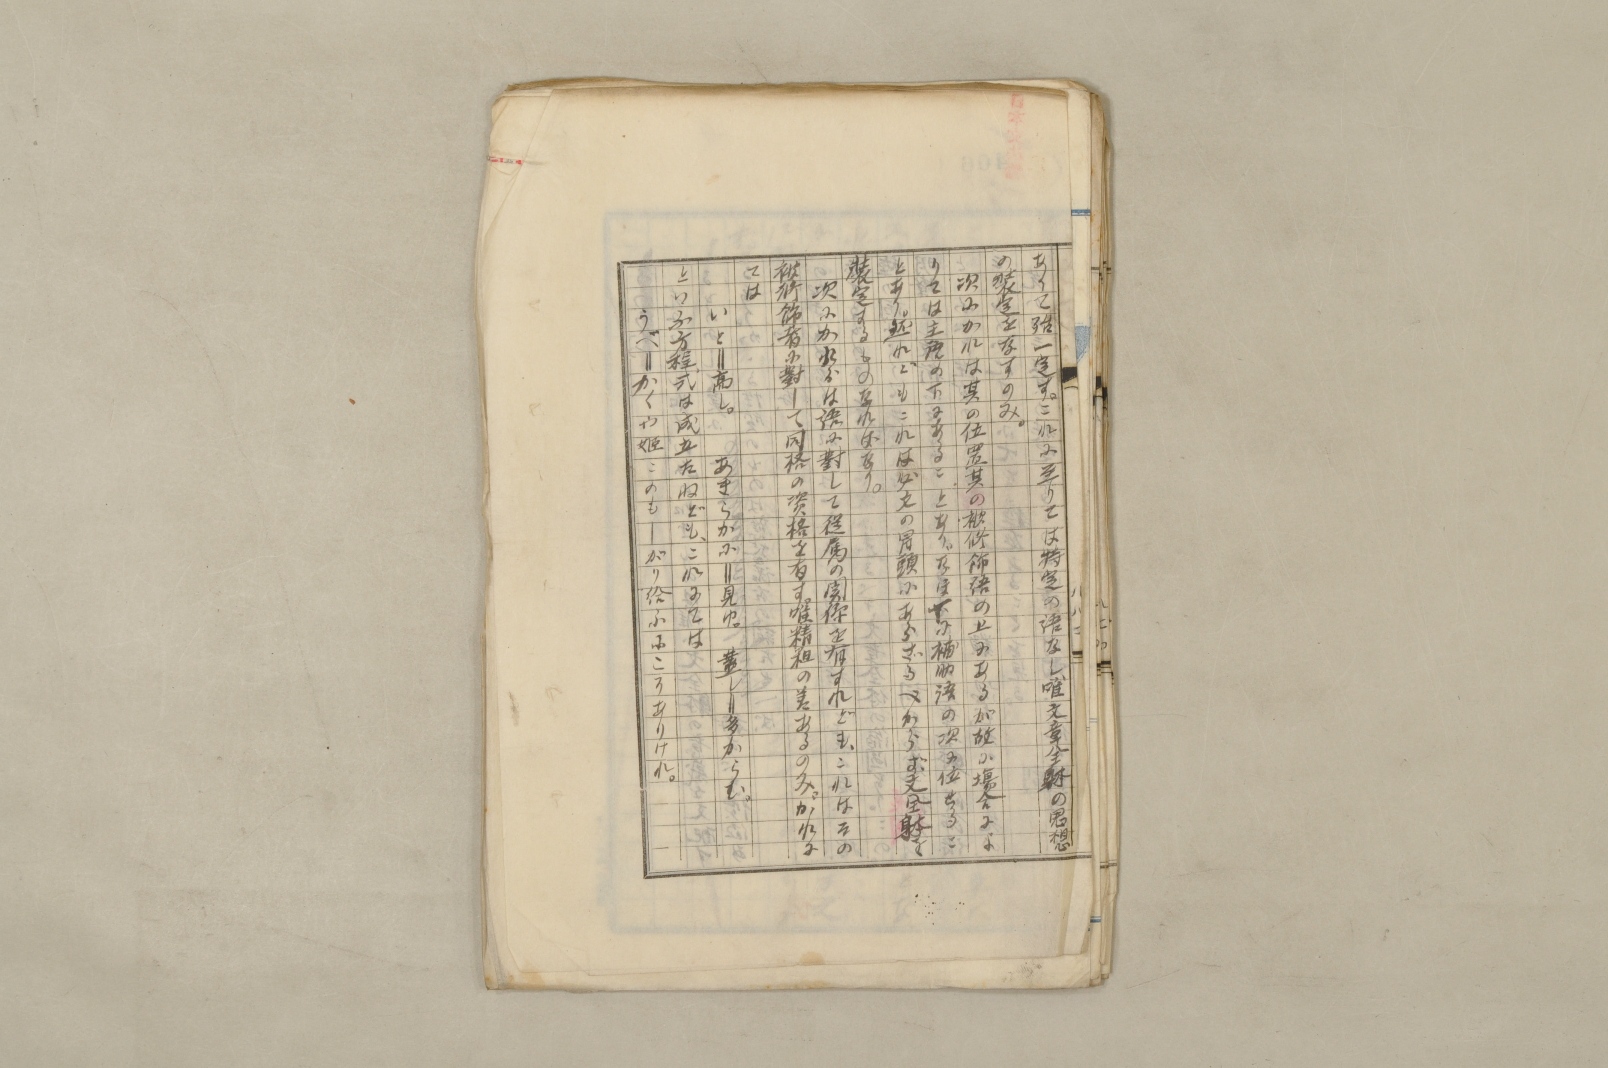 ありて一定す。これに至りては特定の語なし。唯文章全躰の思想
の裝定をなすのみ。
次にかれは其の位置其の被修飾語の上にあるが故に場合によ
りては主語の下にあることあり。なほ下に補助語の次に位することあり
とあり。然れどもこれは必文の冒頭にあらざるべからず文全躰を
裝定するものなればなり。
次にかれらは語に對して從属の関係を有すれども、これはその
被修飾者に對して同格の資格を有す。唯精粗の差あるのみ。かれに
ては
いと=高し。 あきらかに=見ゆ。 蓋し=多からむ。
といふ方程式は成立たねども、これにては
うべ=かくや姫このもしがり給ふにこそありけれ。